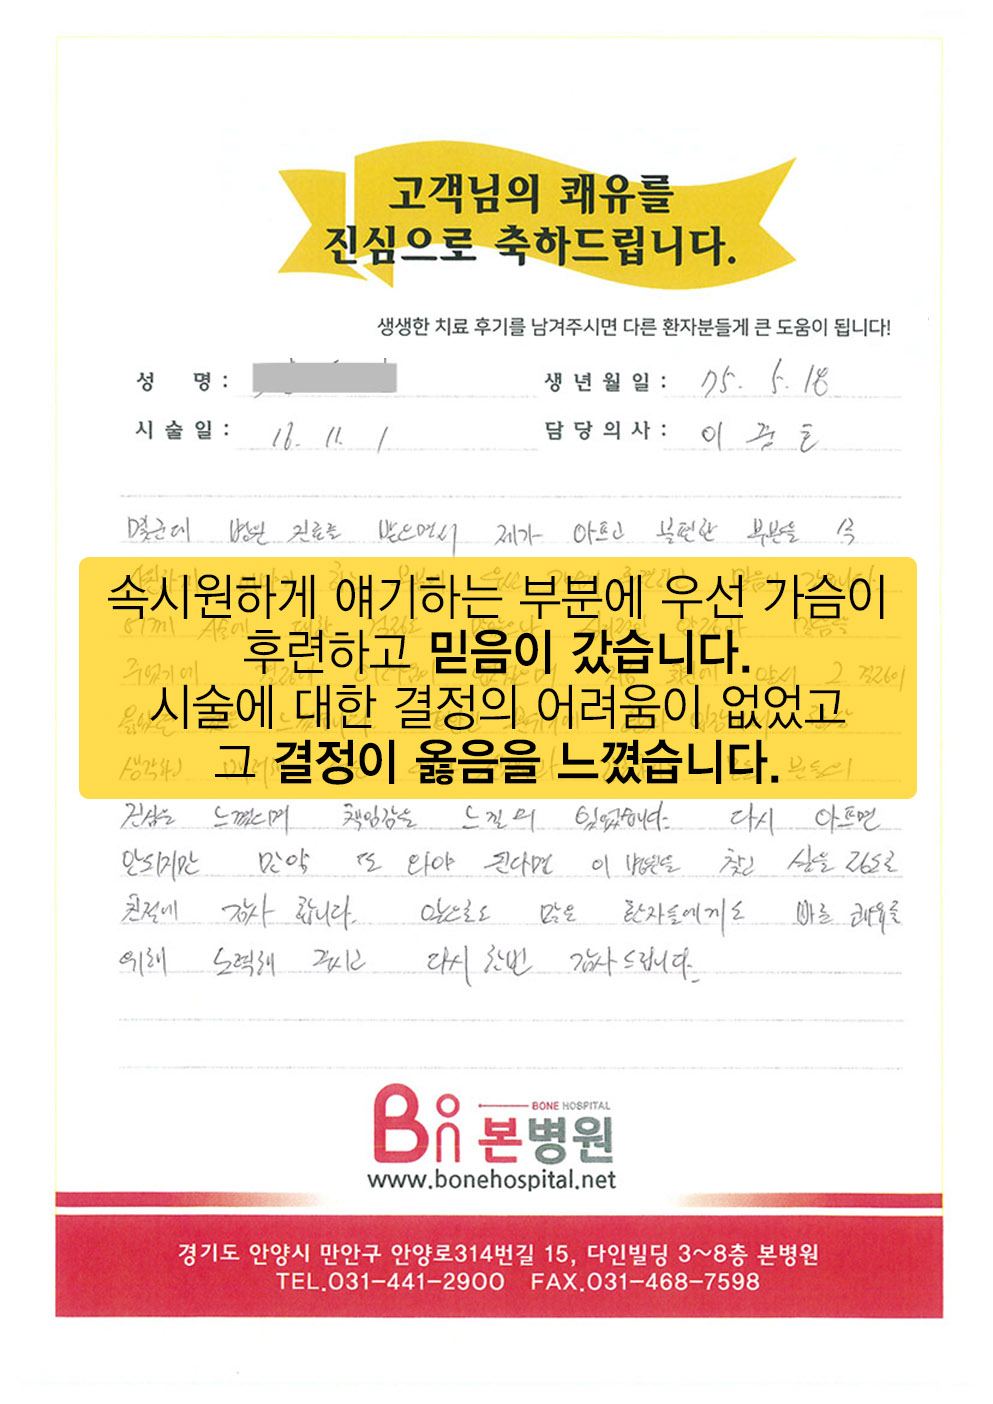 고객님의 쾌유를
진심으로 축하드립니다.
생생한 치료 후기를 남겨주시면 다른 환자분들게 큰 도움이 됩니다!
성 명 :
생 년 월 일 : 75. 5. 18
시 술 일 : 16. 11. 1
담 당 의 사 : 이
몇군데 병원 진료를 받으면서 제가 아프고 불편한 부분을 속
속시원하게 얘기하는 부분에 우선 가슴이
후련하고 믿음이 갔습니다.
시술에 대한 결정의 어려움이 없었고
그 결정이 옳음을 느꼈습니다.
진심을 느꼈으며 책임감을 느낄 수 있었습니다. 다시 아프면
안되지만 만약 또 와야 된다면 이 병원을 찾고 싶을 정도로
친절에 감사 합니다. 앞으로도 많은 환자들에게도 빠른 쾌유를
위해 노력해 주시고 다시 한번 감사드립니다.
BONE HOSPITAL
본병원
www.bonehospital.net
경기도 안양시 만안구 안양로314번길 15, 다인빌딩 3~8층 본병원
TEL.031-441-2900 FAX.031-468-7598